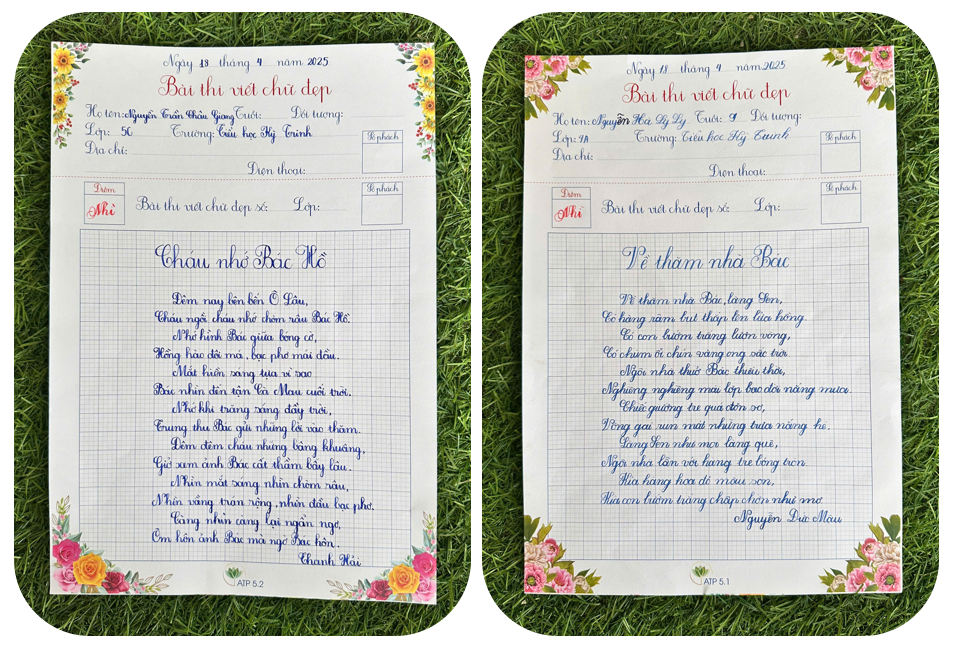 Ngày 18 tháng 4 năm 2025
Bài thi viết chữ đẹp
Họ tên: Nguyễn Trần Châu Giang Tuổi: Đối tượng:
Lớp: 5C Trường: Tiểu học Kỳ Trinh
Địa chỉ:
Điện thoại:
Số phách
Điểm
Nhì
Bài thi viết chữ đẹp số: Lớp:
Số phách
Cháu nhớ Bác Hồ
Đêm nay bên bến Ô Lâu,
Cháu ngồi cháu nhớ chòm râu Bác Hồ.
Nhớ hình Bác giữa bóng cờ,
Hồng hào đôi má, bạc phơ mái đầu.
Mắt hiền sáng tựa vì sao
Bác nhìn đến tận Cà Mau cuối trời.
Nhớ khi trăng sáng đầy trời,
Trung thu Bác gửi những lời vào thăm.
Đêm đêm cháu những bâng khuâng,
Giở xem ảnh Bác cất thầm bấy lâu.
Nhìn mắt sáng nhìn chòm râu,
Nhìn vầng trán rộng, nhìn đầu bạc phơ.
Càng nhìn càng lại ngẩn ngơ,
Ôm hôn ảnh Bác mà ngờ Bác hôn.
Thanh Hải
ATP 5.2
Ngày 18 tháng 4 năm 2025
Bài thi viết chữ đẹp
Họ tên: Nguyễn Hà Ly Ly Tuổi: 9 Đối tượng:
Lớp: 4A Trường: Tiểu học Kỳ Trinh
Địa chỉ:
Điện thoại:
Số phách
Điểm
Nhì
Bài thi viết chữ đẹp số: Lớp:
Số phách
Về thăm nhà Bác
Về thăm nhà Bác, làng Sen,
Có hàng râm bụt thắp lên lửa hồng.
Có con bướm trắng lượn vòng,
Có chùm ổi chín vàng ong sắc trời.
Ngôi nhà thuở Bác thiếu thời,
Nghiêng nghiêng mái lợp bao đời nắng mưa.
Chiếc giường tre quá đơn sơ,
Võng gai ru mát những trưa nắng hè.
Làng Sen như mọi làng quê,
Ngôi nhà lẫn với hàng tre bóng tròn.
Kìa hàng hoa đỏ màu son,
Kìa con bướm trắng chập chờn như mơ.
Nguyễn Đức Mậu
ATP 5.1